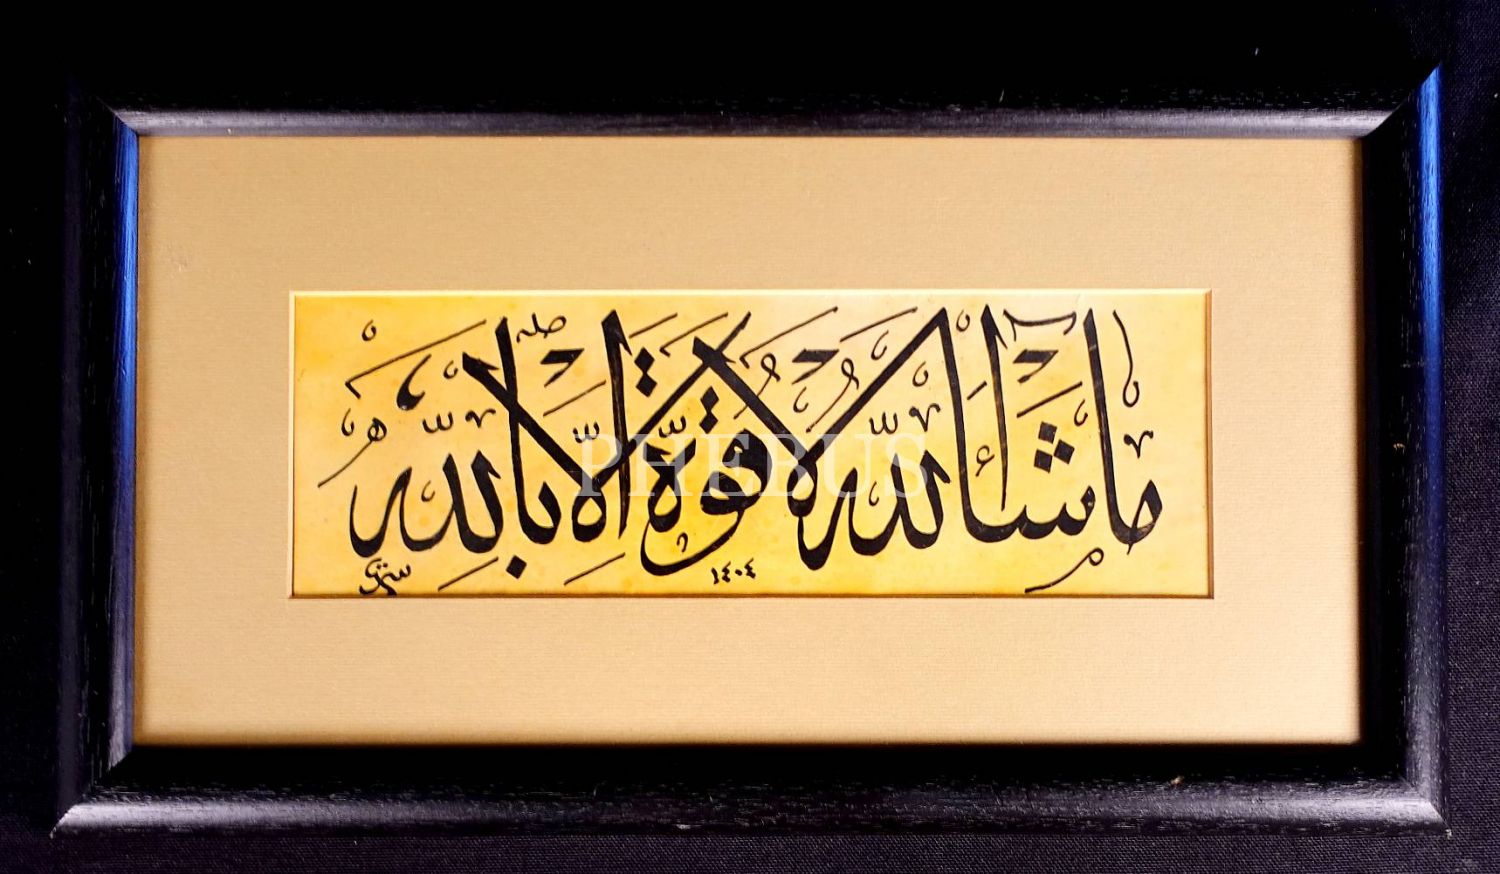 ما شاء الله لا قوة الا بالله
١٤٠٤
PHEBUS